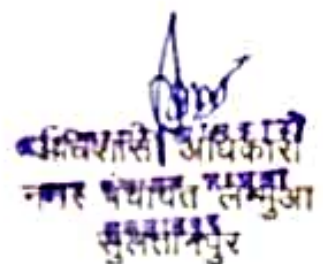 अधिशासी अधिकारी
नगर पंचायत लम्भुआ
सुलतानपुर